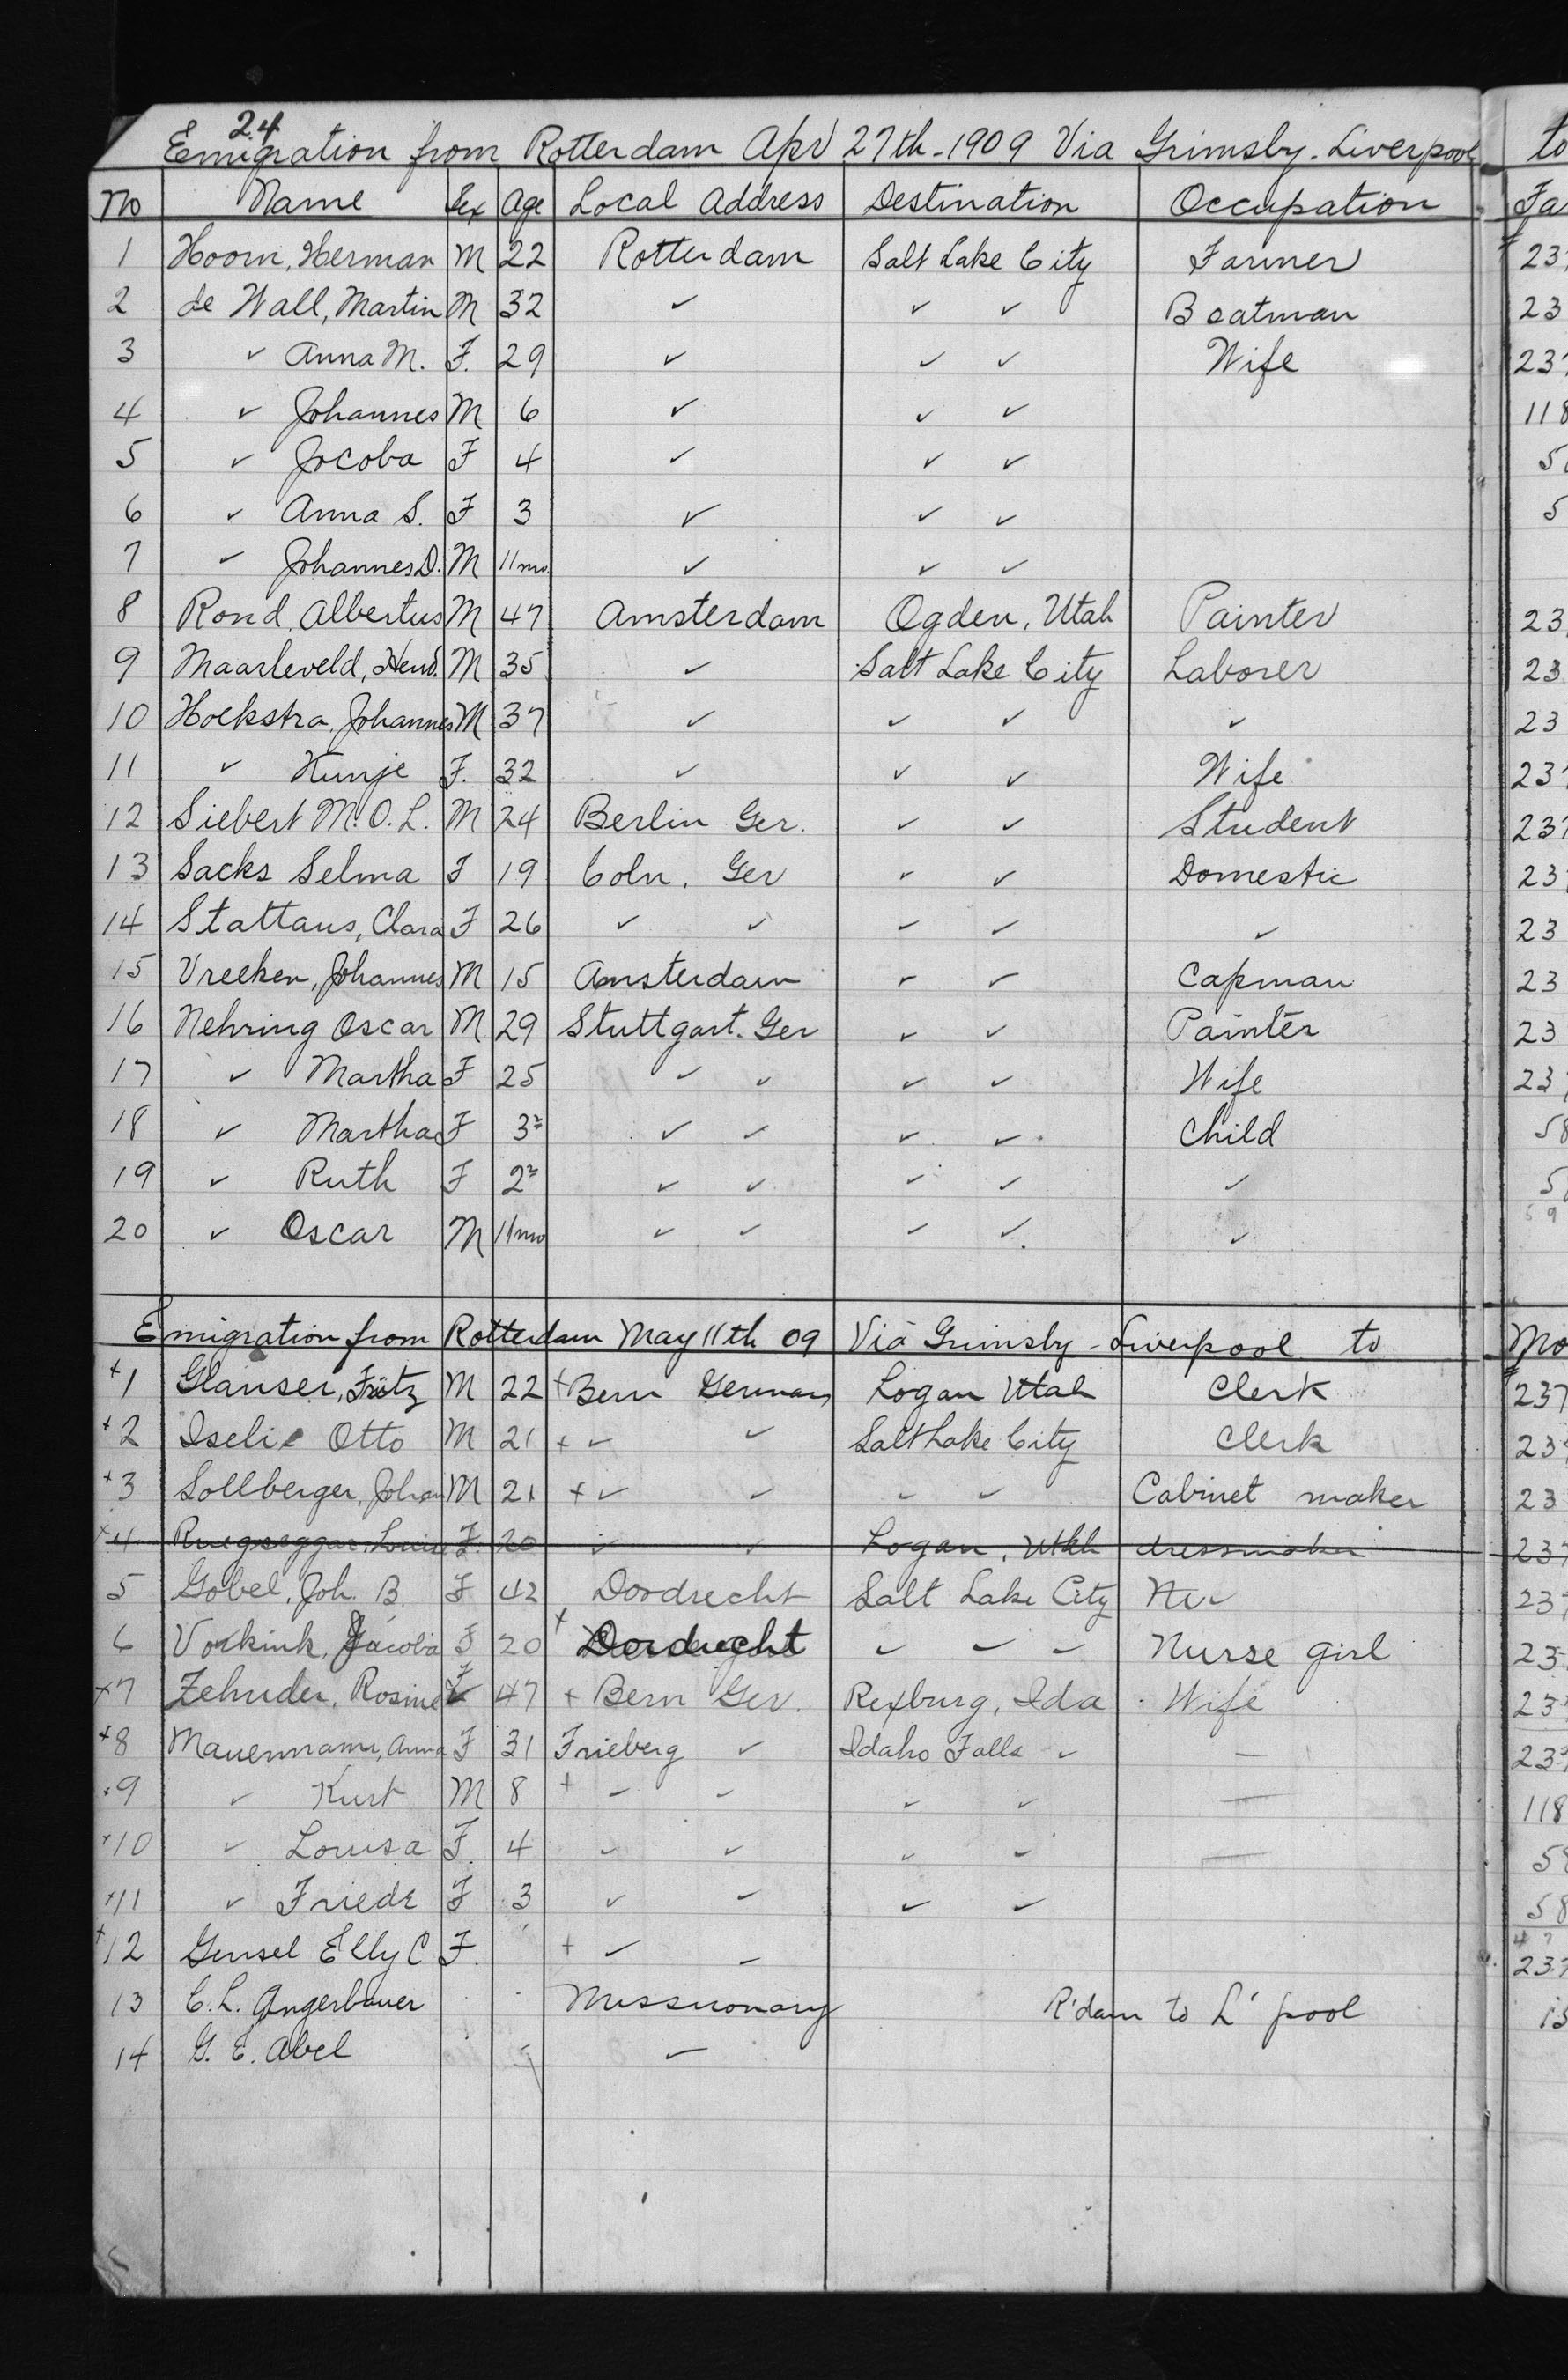 24
Emigration from Rotterdam Apr 27th-1909 Via Grimsby-Liverpool to
No Name Sex Age Local Address Destination Occupation Fa
1 Hoorn, Herman M 22 Rotterdam Salt Lake City Farmer 23
2 de Wall, Martin M 32 ✓ ✓ ✓ Boatman 23
3 ✓ Anna M. F. 29 ✓ ✓ ✓ Wife 23
4 ✓ Johannes M 6 ✓ ✓ ✓ 118
5 ✓ Jocoba F 4 ✓ ✓ ✓ 5
6 ✓ Anna S. F 3 ✓ ✓ ✓ 5
7 ✓ Johannes D. M 11mo. ✓ ✓ ✓
8 Rond, Albertus M 47 Amsterdam Ogden, Utah Painter 23
9 Maarleveld, Hend. M 35 ✓ Salt Lake City Laborer 23
10 Hoekstra, Johannes M 37 ✓ ✓ ✓ ✓ 23
11 ✓ Kunje F. 32 ✓ ✓ ✓ Wife 23
12 Siebert M.O.L. M 24 Berlin Ger. ✓ ✓ Student 237
13 Sacks Selma F 19 Coln. Ger ✓ ✓ Domestic 23
14 Stattaus, Clara F 26 ✓ ✓ ✓ ✓ ✓ 23
15 Vreeken, Johannes M 15 Amsterdam ✓ ✓ Capman 23
16 Nehring Oscar M 29 Stuttgart. Ger ✓ ✓ Painter 23
17 ✓ Martha F 25 ✓ ✓ ✓ ✓ Wife 23
18 ✓ Martha F 3 ✓ ✓ ✓ ✓ Child 58
19 ✓ Ruth F 2 ✓ ✓ ✓ ✓ ✓ 5
20 ✓ Oscar M 11mo ✓ ✓ ✓ ✓ ✓
Emigration from Rotterdam May 11th 09 Via Grimsby-Liverpool to Mo
+1 Glauser, Fritz M 22 + Bern Germany Logan Utah Clerk 237
+2 Iseli Otto M 21 + ✓ ✓ Salt Lake City Clerk 23
+3 Sollberger, Johan M 21 + ✓ ✓ ✓ ✓ Cabinet maker 23
+4 Ruegseggar, Louise F. 20 ✓ ✓ Logan, Utah dressmaker 237
5 Gobel, Joh. B. F 42 Dordrecht Salt Lake City 23
6 Vorkink, Jacoba F 20 + Dordrecht ✓ ✓ ✓ Nurse girl 23
+7 Zehnder, Rosine F 47 + Bern Ger. Rexburg, Ida Wife 23
+8 Mauermann, Anna F 31 Frieberg ✓ Idaho Falls ✓ — 23
+9 ✓ Kurt M 8 + ✓ ✓ ✓ ✓ — 118
+10 ✓ Louisa F. 4 ✓ ✓ ✓ ✓ — 58
+11 ✓ Friede F 3 ✓ ✓ ✓ ✓ 58
+12 Gensel Elly C F. + ✓ ✓ 237
13 C.L. Angerbauer Missionary R'dam to L'pool
14 G. E. Abel ✓